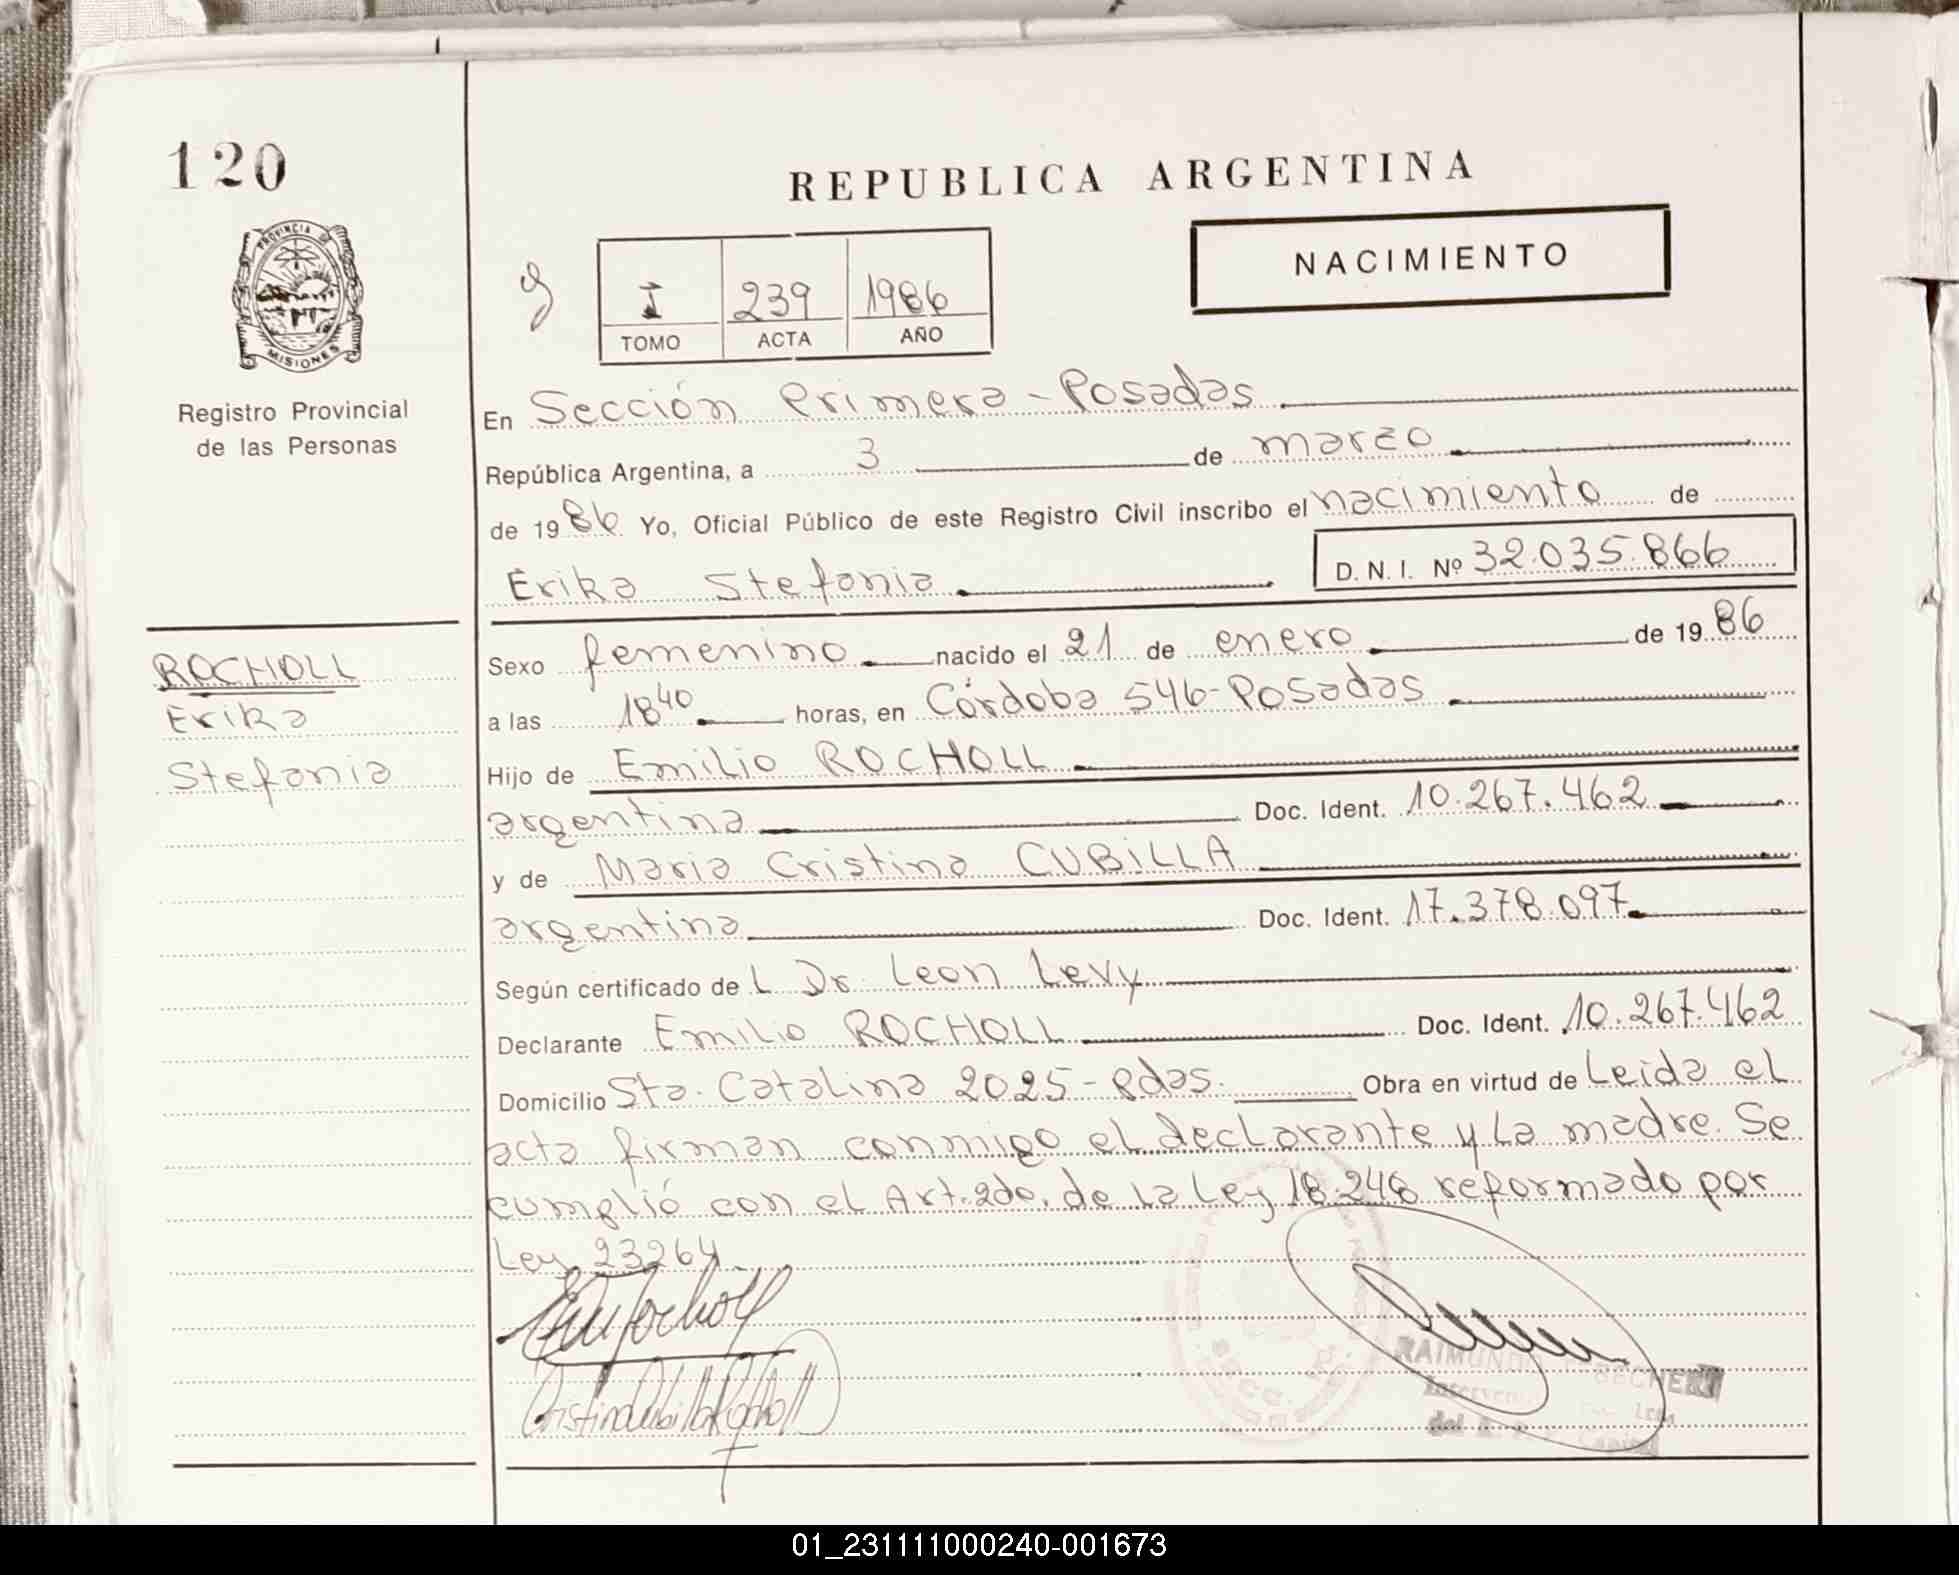 120
REPUBLICA ARGENTINA
PROVINCIA DE
MISIONES
Registro Provincial
de las Personas
NACIMIENTO
I 239 1986
TOMO ACTA AÑO
En Sección Primera - Posadas
República Argentina, a 3 de marzo
de 1986 Yo, Oficial Público de este Registro Civil inscribo el nacimiento de
Erika Stefania D.N.I. Nº 32.035.866
ROCHOLL
Erika
Stefania
Sexo femenino nacido el 21 de enero de 1986
a las 18 40 horas, en Córdoba 546-Posadas
Hijo de Emilio ROCHOLL
argentina Doc. Ident. 10.267.462
y de Maria Cristina CUBILLA
argentina Doc. Ident. 17.378.097
Según certificado de L Dr. Leon Levy
Declarante Emilio ROCHOLL Doc. Ident. 10.267.462
Domicilio Sta. Catalina 2025 - Pdas. Obra en virtud de Leida el
acta firman conmigo el declarante y la madre. Se
cumplió con el Art. 2do. de la Ley 18.248 reformado por
Ley 23264
RAIMUNDO
01_231111000240-001673